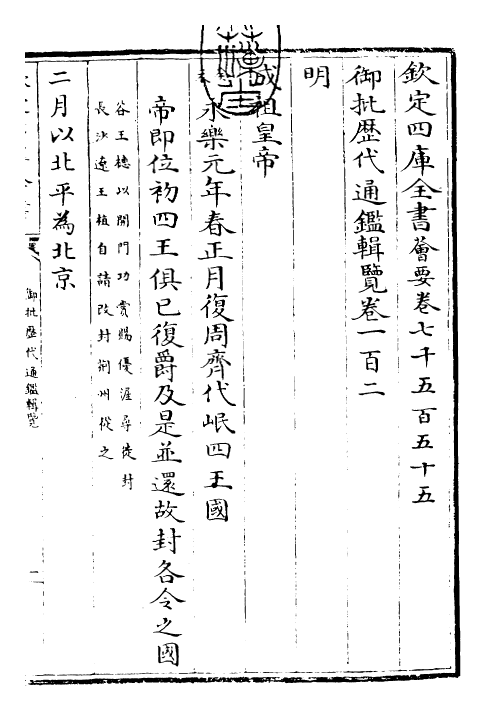 欽定四庫全書薈要卷七千五百五十五
御批歷代通鑑輯覽卷一百二
明
成祖皇帝
永樂元年春正月復周齊代岷四王國
帝即位初四王俱已復爵及是並還故封各令之國
谷王橞以開門功賞賜優渥尋徙封
長沙遼王植自請改封荆州從之
二月以北平為北京
御批歷代通鑑輯覽